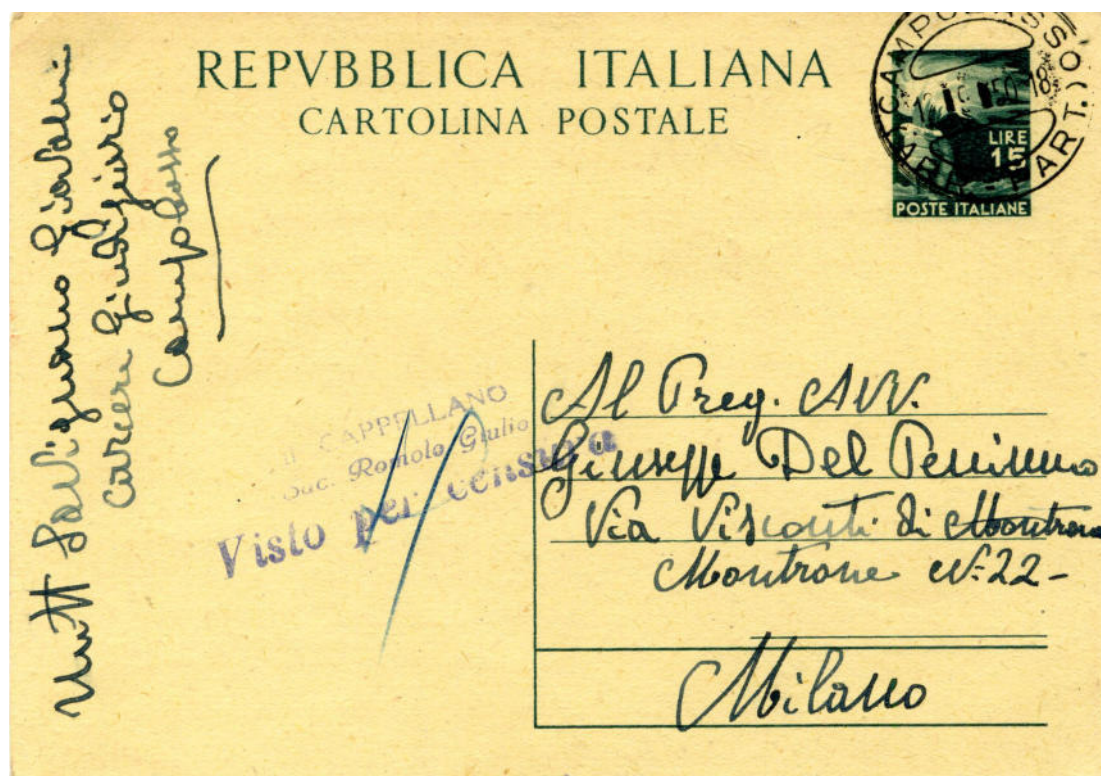 REPVBBLICA ITALIANA
CARTOLINA POSTALE
CAMPOBASSO
(ARR. PART.)
50-18
LIRE
15
POSTE ITALIANE
Mitt
Giovanni
Carcere Giudiziario
Campobasso
IL CAPPELLANO
Sac. Romolo Giulio
Visto per censura
Al Preg. Avv.
Giuseppe Del
Via Visconti di Montrone
Montrone N. 22-
Milano